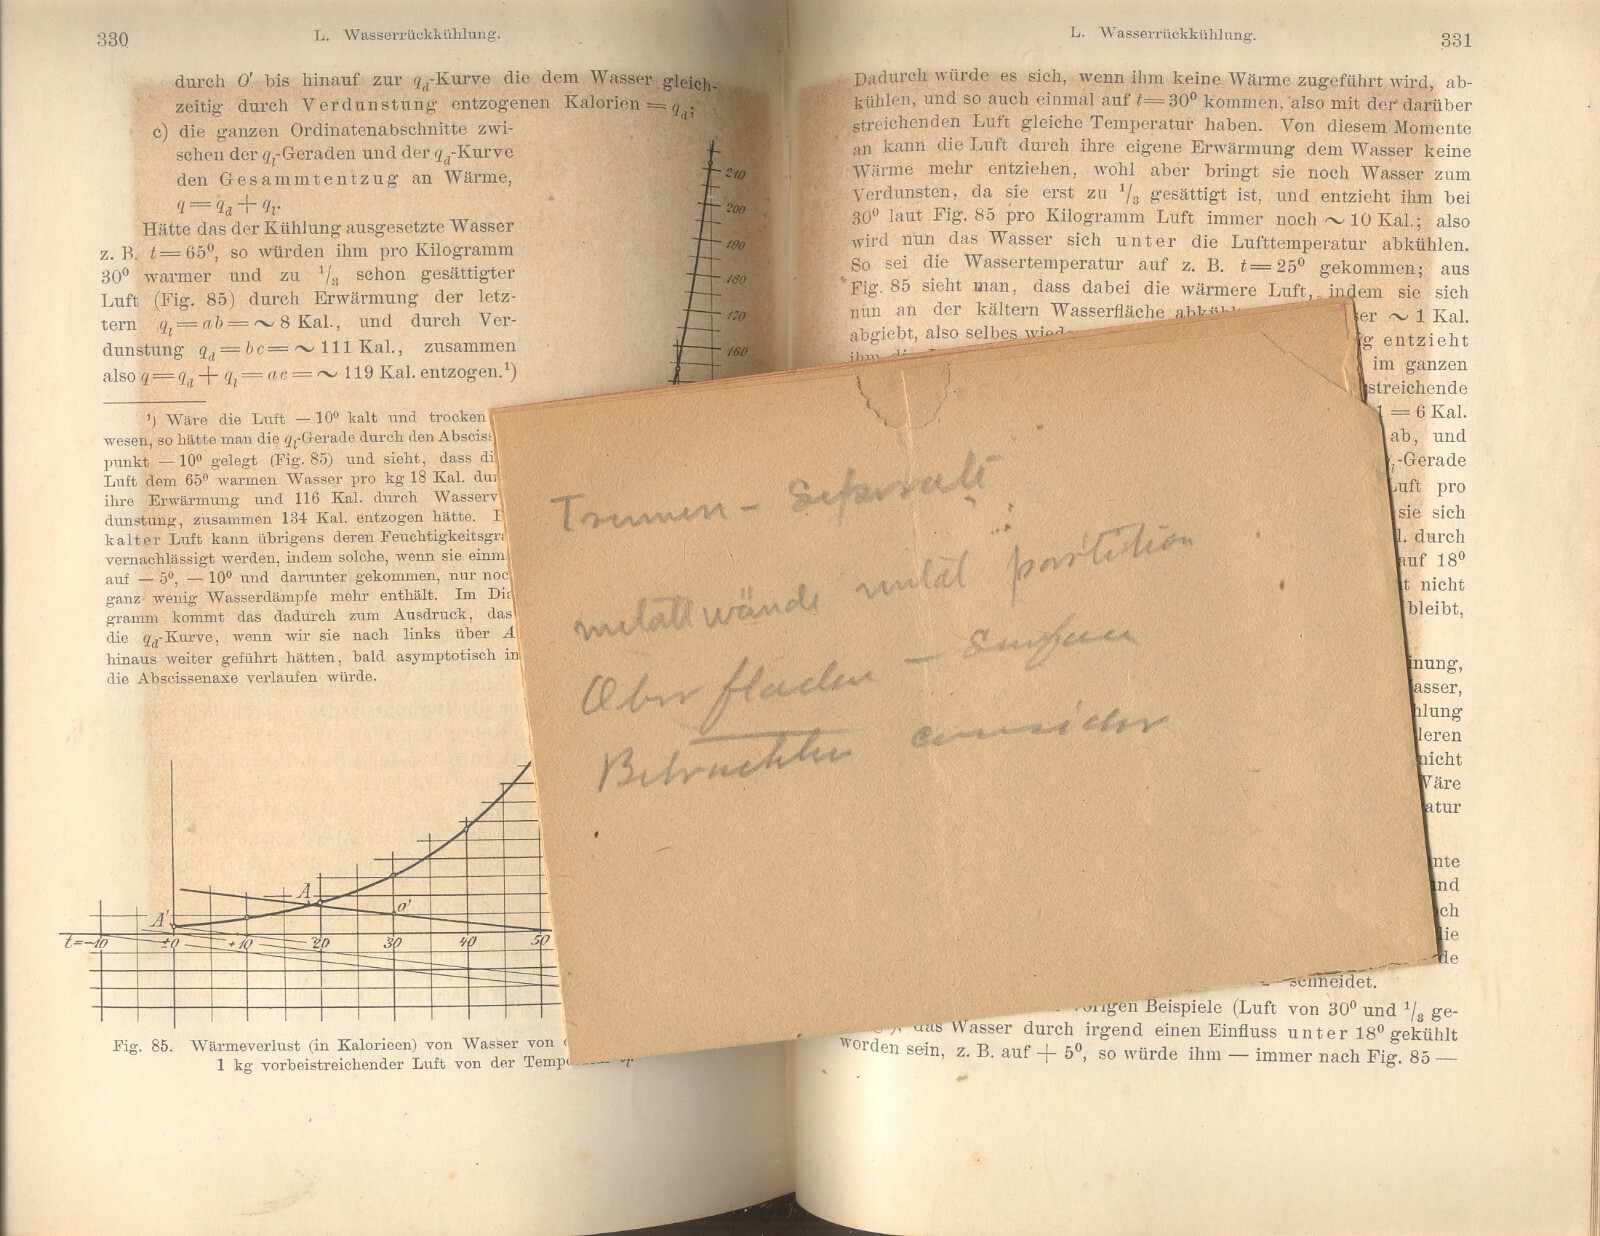 330
L. Wasserrückkühlung.
durch O' bis hinauf zur q_d-Kurve die dem Wasser gleich-
zeitig durch Verdunstung entzogenen Kalorien = q_d;
c) die ganzen Ordinatenabschnitte zwi-
schen der q_l-Geraden und der q_d-Kurve
den Gesammtentzug an Wärme,
q = q_d + q_l.
Hätte das der Kühlung ausgesetzte Wasser
z. B. t = 65⁰, so würden ihm pro Kilogramm
30⁰ warmer und zu 1/3 schon gesättigter
Luft (Fig. 85) durch Erwärmung der letz-
tern q_l = ab = ~ 8 Kal., und durch Ver-
dunstung q_d = bc = ~ 111 Kal., zusammen
also q = q_d + q_l = ac = ~ 119 Kal. entzogen.¹)
¹) Wäre die Luft — 10⁰ kalt und trocken
wesen, so hätte man die q_l-Gerade durch den
punkt — 10⁰ gelegt (Fig. 85) und sieht, dass
Luft dem 65⁰ warmen Wasser pro kg 18 Kal.
ihre Erwärmung und 116 Kal. durch
dunstung, zusammen 134 Kal. entzogen hätte.
kalter Luft kann übrigens deren
vernachlässigt werden, indem solche, wenn sie
auf — 5⁰, — 10⁰ und darunter gekommen, nur
ganz wenig Wasserdämpfe mehr enthält. Im
gramm kommt das dadurch zum Ausdruck,
die q_d-Kurve, wenn wir sie nach links über A
hinaus weiter geführt hätten, bald asymptotisch in
die Abscissenaxe verlaufen würde.
210
200
190
180
170
160
A' A O'
t=—10 ±0 +10 20 30 40 50
Fig. 85. Wärmeverlust (in Kalorieen) von Wasser von
1 kg vorbeistreichender Luft von der
Trennen - Separate
metallwände metal partition
Oberflächen - Surfaces
Betrachten consider
L. Wasserrückkühlung.
331
Dadurch würde es sich, wenn ihm keine Wärme zugeführt wird, ab-
kühlen, und so auch einmal auf t = 30⁰ kommen, also mit der darüber
streichenden Luft gleiche Temperatur haben. Von diesem Momente
an kann die Luft durch ihre eigene Erwärmung dem Wasser keine
Wärme mehr entziehen, wohl aber bringt sie noch Wasser zum
Verdunsten, da sie erst zu 1/3 gesättigt ist, und entzieht ihm bei
30⁰ laut Fig. 85 pro Kilogramm Luft immer noch ~ 10 Kal.; also
wird nun das Wasser sich unter die Lufttemperatur abkühlen.
So sei die Wassertemperatur auf z. B. t = 25⁰ gekommen; aus
Fig. 85 sieht man, dass dabei die wärmere Luft, indem sie sich
nun an der kältern Wasserfläche ~ 1 Kal.
abgiebt, also selbes entzieht
im ganzen
streichende
1 = 6 Kal.
ab, und
-Gerade
Luft pro
sie sich
durch
auf 18⁰
nicht
bleibt,
schneidet.
Beispiele (Luft von 30⁰ und 1/3 ge-
das Wasser durch irgend einen Einfluss unter 18⁰ gekühlt
worden sein, z. B. auf + 5⁰, so würde ihm — immer nach Fig. 85 —